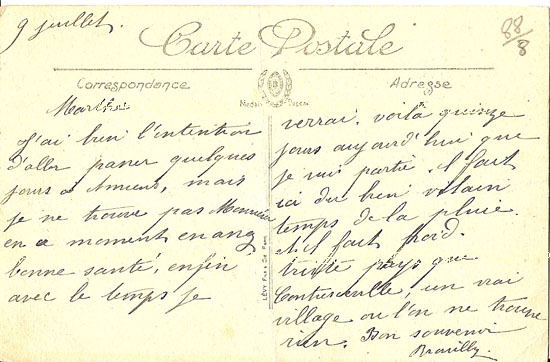 9 juillet.
88/8
Carte Postale
Correspondance
Adresse
J'ai bien l'intention
d'aller passer quelques
jours à Amiens, mais
je ne trouve pas Monsieur
en ce moment en
bonne santé, enfin
avec le temps je
LÉVY Fils & Cie Paris
verrai. voilà quinze
jours aujourd'hui que
je suis partie. il fait
ici du bien vilain
temps de la pluie.
et il fait froid.
triste pays que
Contrexeville, un vrai
village ou l'on ne trouve
rien. Bon souvenir